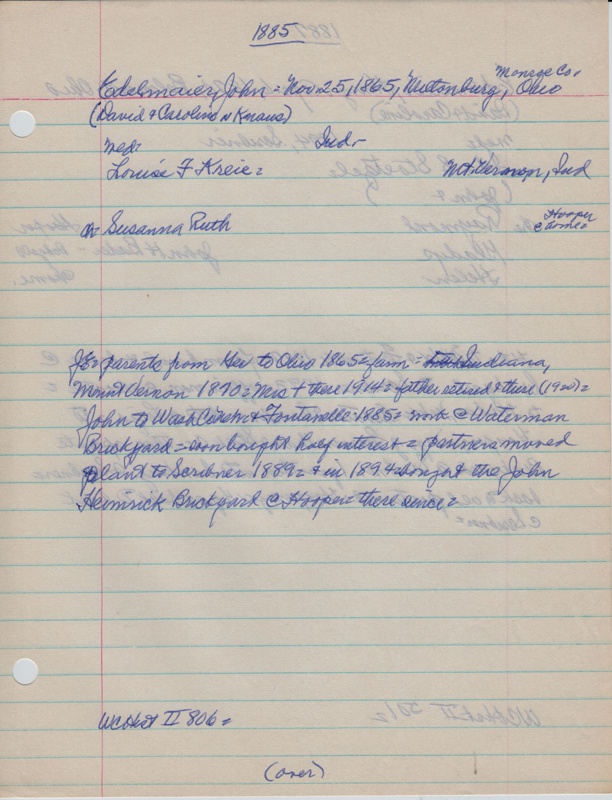 1885
Edelmaier, John = Nov. 25, 1865, Miltonburg, Monroe Co. Ohio
(David & Caroline N Knaus)
med: Ind.
Louise F Kreie = Mt. Vernon, Ind
ch Susanna Ruth Hooper
@ home
JE = parents from Ger to Ohio 1865 = fam = Indiana,
Mount Vernon 1870 = Mrs + there 1914 = father retired & there (1920) =
John to Wash Co Nebr & Fontanelle 1885 = work @ Waterman
Brickyard = soon bought half interest = partners moved
plant to Scribner 1889 = & in 1894 bought the John
Heimrick Brickyard @ Hooper = there since =
WCoHist II 806 =
(over)